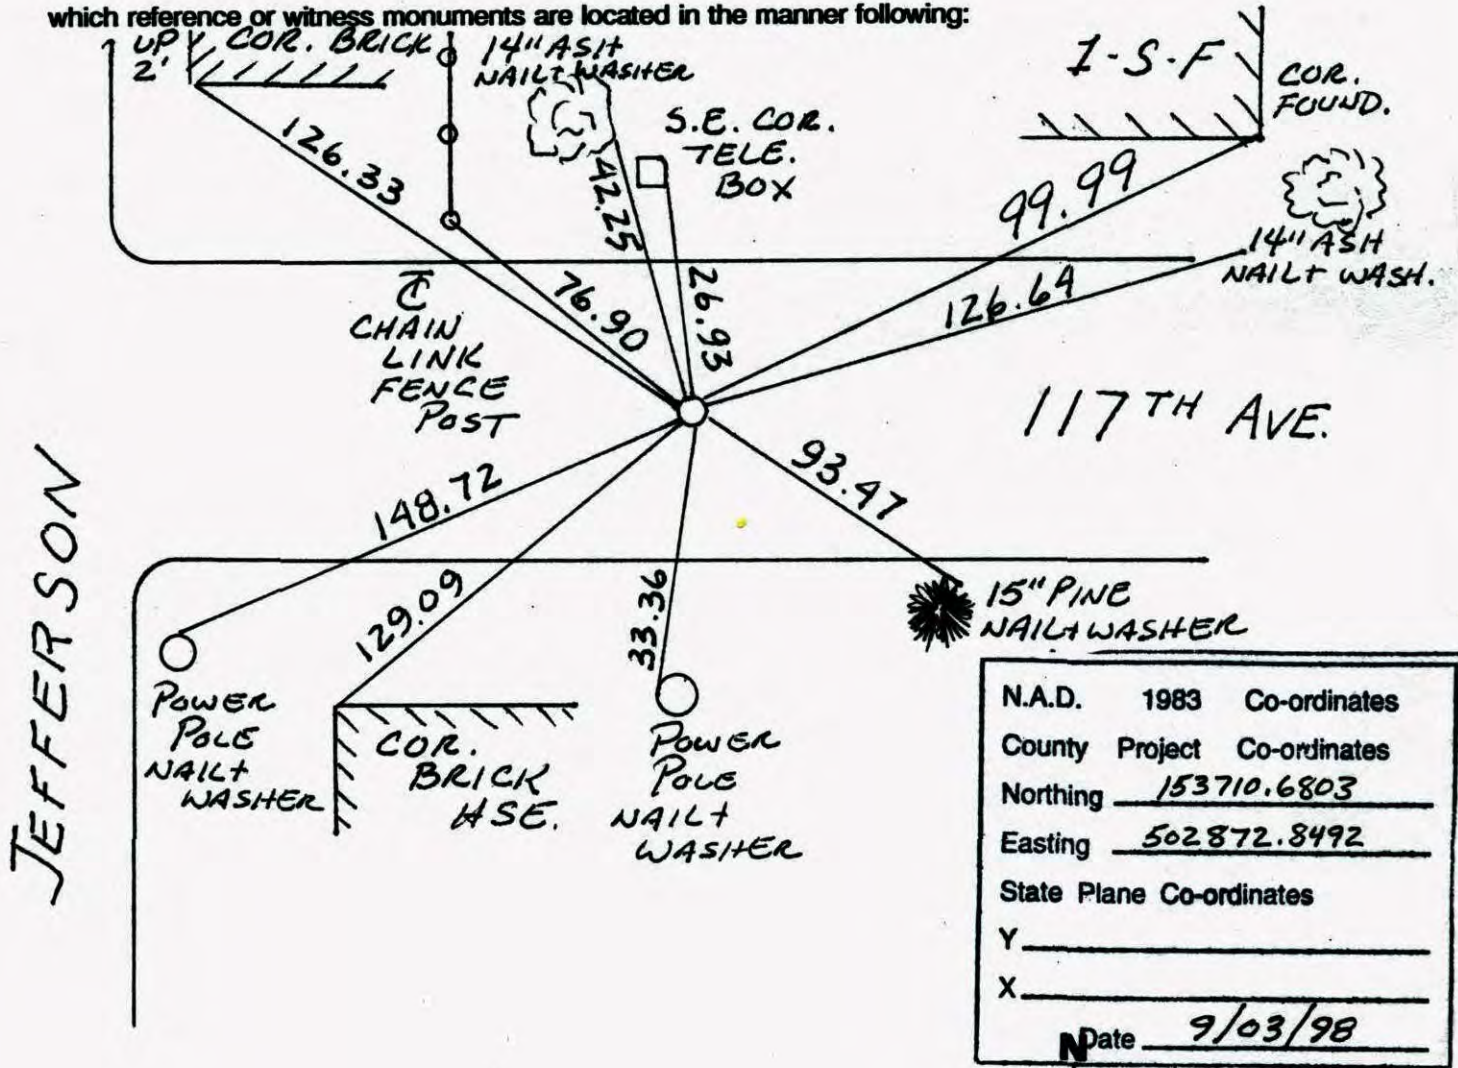 which reference or witness monuments are located in the manner following:
UP
2'
COR. BRICK
14" ASH
NAIL + WASHER
1-S-F
COR.
FOUND.
S.E. COR.
TELE.
BOX
126.33
42.25
99.99
14" ASH
NAIL + WASH.
76.90
26.93
126.64
℄
CHAIN
LINK
FENCE
POST
117TH AVE.
JEFFERSON
148.72
93.47
129.09
33.36
15" PINE
NAIL + WASHER
POWER
POLE
NAIL +
WASHER
COR.
BRICK
HSE.
POWER
POLE
NAIL +
WASHER
N.A.D. 1983 Co-ordinates
County Project Co-ordinates
Northing 153710.6803
Easting 502872.8492
State Plane Co-ordinates
Y
X
N Date 9/03/98